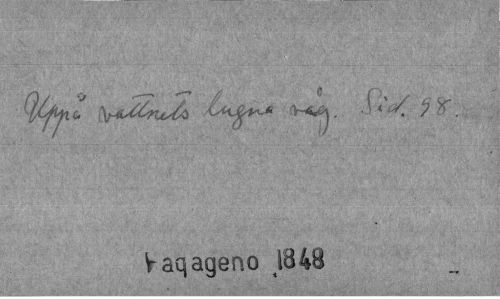 Uppå vattnets lugna våg. Sid. 98.
Papageno 1848